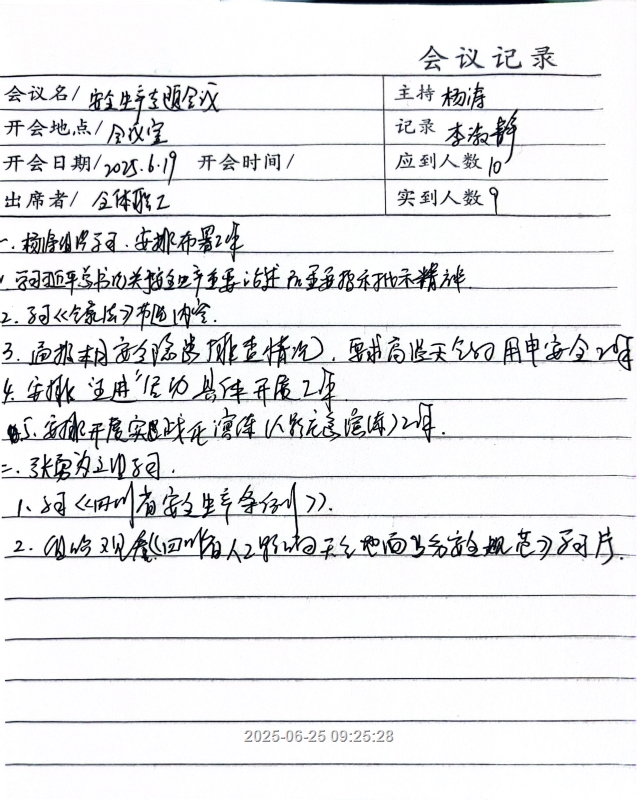 会议记录
会议名/ 安全生产专题会议 主持 杨涛
开会地点/ 会议室 记录 李淑静
开会日期/ 2025.6.19 开会时间/ 应到人数 10
出席者/ 全体职工 实到人数 9
一. 杨涛组织学习、安排布署工作
1. 学习习近平总书记关于安全生产重要论述和重要指示批示精神.
2. 学习《气象法》节选内容.
3. 通报本月安全隐患排查情况, 要求高温天气的用电安全工作
4. 安排"五进"活动具体开展工作.
5. 安排开展实战演练(人影应急演练)工作.
二. 张勇为主讲学习.
1. 学习《四川省安全生产条例》.
2. 组织观看《四川省人工影响天气地面作业安全规范》学习片.
2025-06-25 09:25:28